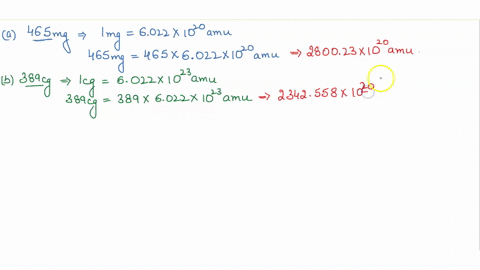 (a) 465mg ⇒ 1mg = 6.022 × 10²⁰ amu
465mg = 465 × 6.022 × 10²⁰ amu → 2800.23 × 10²⁰ amu.
(b) 389cg ⇒ 1cg = 6.022 × 10²³ amu
389cg = 389 × 6.022 × 10²³ amu → 2342.558 × 10²⁰